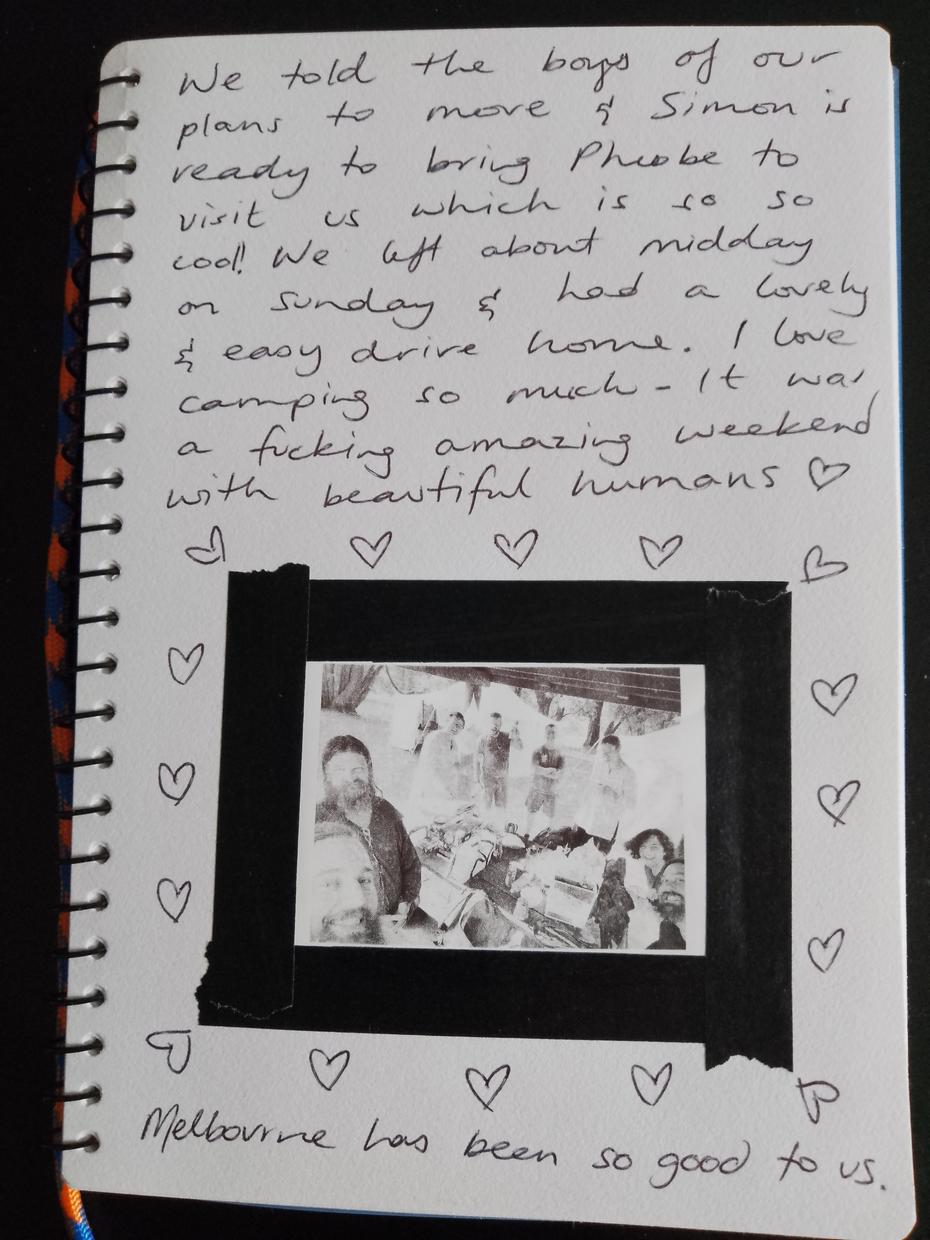 We told the boys of our
plans to move & Simon is
ready to bring Pheobe to
visit us which is so so
cool! We left about midday
on sunday & had a lovely
& easy drive home. I love
camping so much - It was
a fucking amazing weekend
with beautiful humans ♡
Melbourne has been so good to us.